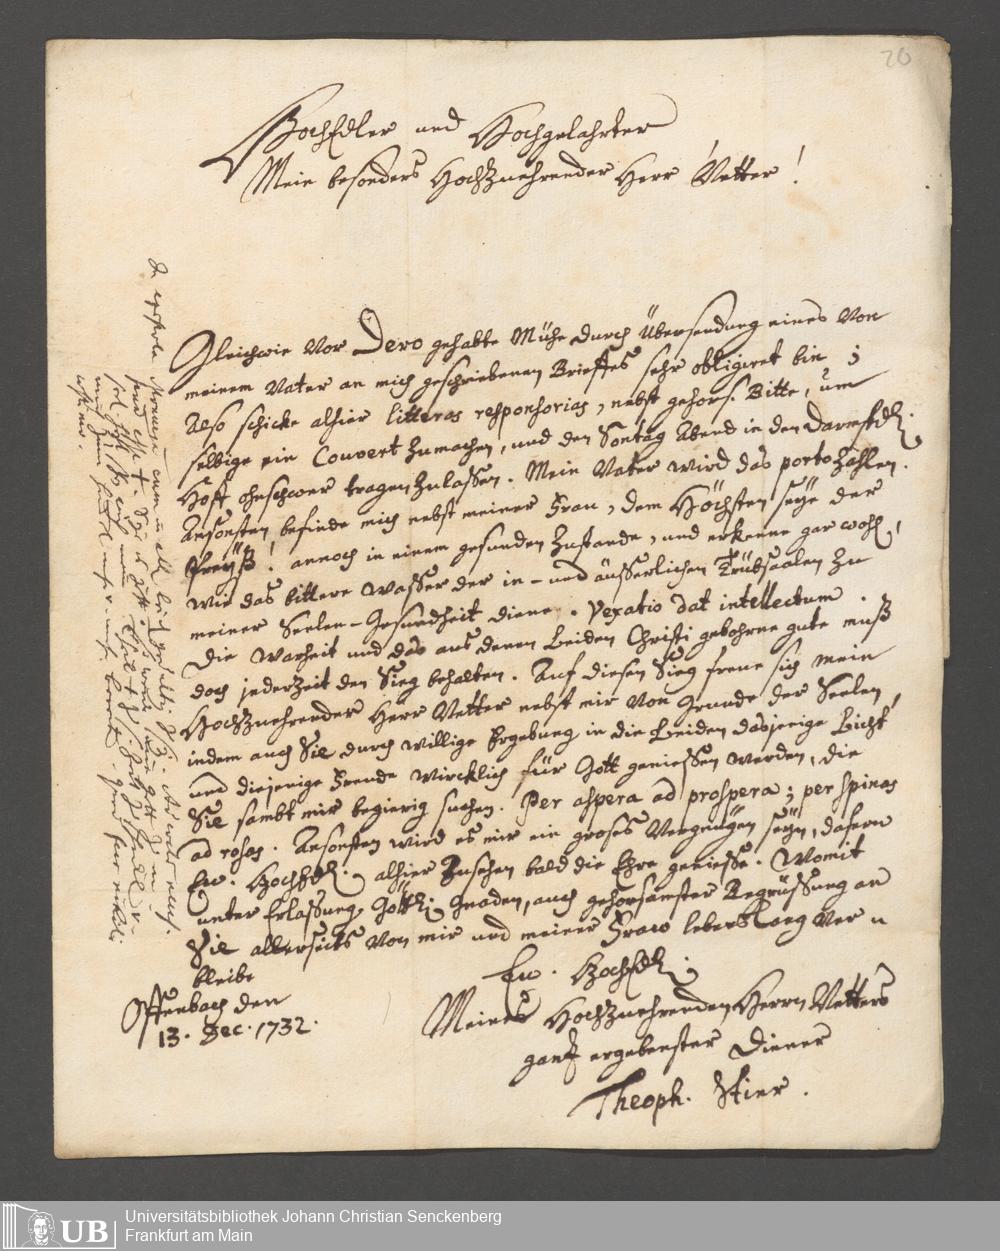 20
HochEdler und Hochgelahrter
Mein besonders Hochzuehrender Herr Vetter!
Gleichwie Vor Dero gehabte Mühe durch Übersendung eines Von
meinem Vater an mich geschriebenen Brieffes sehr obligiret bin;
Also schicke alhier litteras responsorias, nebst gehors. Bitte, üm
selbige ein Couvert zumachen, und den Sontag Abend in den Darmstdl.
Hoff ohnschwer tragen zulassen. Mein Vater wird das porto zahlen.
Ansonsten befinde mich nebst meiner Frau, dem Höchsten seye der
Preyß! annoch in einem gesunden Zustande, und erkenne gar wohl,
wie das bittere Wasser der in- und äusserlichen Trübsaalen zu
meiner Seelen-Gesundheit diene. Vexatio dat intellectum.
Die Warheit und das aus denen Leiden Christi gebohrne gute muß
doch jederzeit den Sieg behalten. Auf diesen Sieg freue sich mein
Hochzuehrender Herr Vetter nebst mir Von Grunde der Seelen,
indem auch Sie durch willige Ergebung in die Leiden dasjenige Licht
und diejenige Freude wircklich für Gott geniessen werden, die
Sie sambt mir begierig suchen. Per aspera ad prospera; per spinas
ad rosas. Ansonsten wird es mir ein groses Vergnügen seyn, dafern
Ew. HochEdl. alhier zusehen bald die Ehre geniesse. Womit
unter Erlassung Göttl. Gnaden, auch gehorsamster Begrüssung an
Sie allerseits Von mir und meiner Fraw lebenslang Ver
bleibe
Ew. HochEdl.
Offenbach den
13. Dec. 1732.
Meines Hochzuehrenden Herrn Vetters
gantz ergebenster Diener
Theoph. Stier.
Universitätsbibliothek Johann Christian Senckenberg
UB Frankfurt am Main